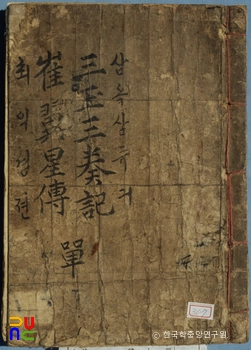 삼옥삼듀긔
三玉三奏記
崔義星傳 單
최의셩젼
© 한국학중앙연구원